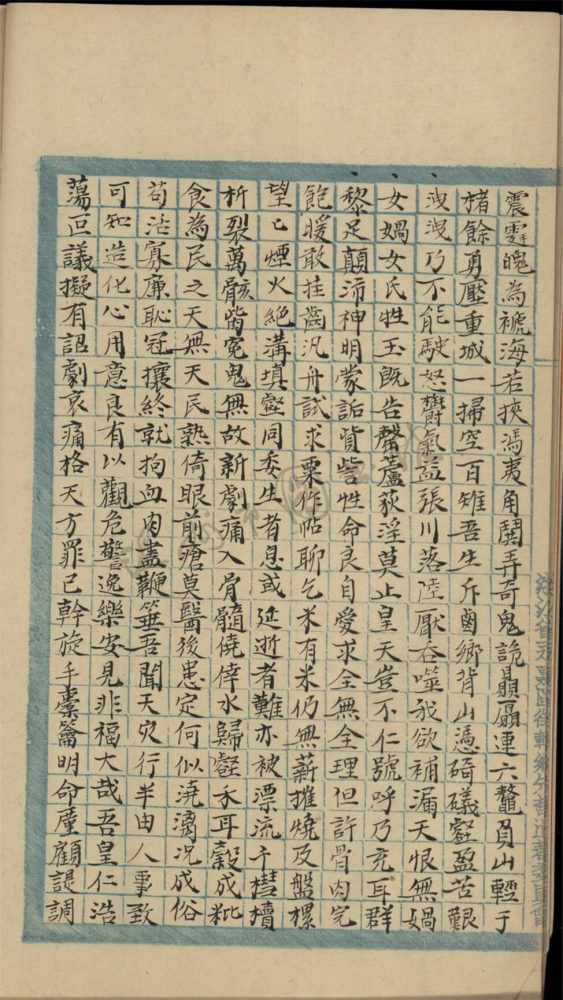 震霶魄為褫海若挾馮夷角鬪弄奇鬼詭贔屭連六鼇負山輕于
楮餘勇壓重城一掃空百雉吾生斥鹵鄉背山憑碕礒壑盈苦艱
洩洩乃不能駛怒鬱氣益張川落陸厭吞噬我欲補漏天恨無媧
女媧女氏牲玉既告罄蘆荻淫莫止皇天豈不仁號呼乃充耳群
黎足顛沛神明蒙詬貲訾性命良自愛求全無全理但許骨肉完
飽暖敢挂齒汎舟試求粟作帖聊乞米有米仍無薪摧燒及盤樏
望望煙火絕溝填壑同委生者息或延逝者難亦被漂流千槥櫝
析裂萬骸胔冤鬼無故新劇痛入骨髓僥倖水歸壑禾耳穀成粃
食為民之天無天民孰倚眼前瘡莫醫後患定何似澆漓况成俗
苟活寡廉恥冠攘終就拘血肉盡鞭箠吾聞天灾行半由人事致
可知造化心用意良有以觀危警逸樂安見非福大哉吾皇仁浩
蕩亟議擬有詔劇哀痛格天方罪己斡旋手橐籥明命廑顧諟調